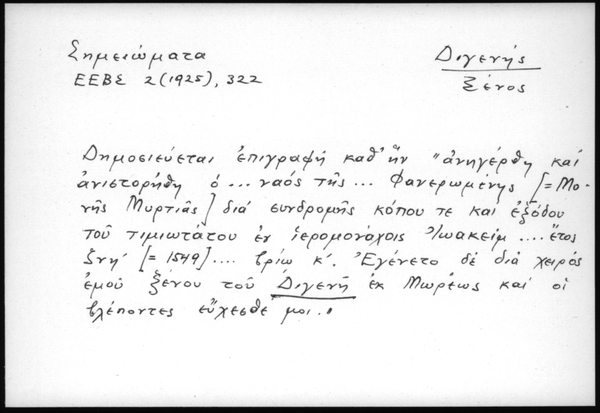 Σημειώματα
ΕΕΒΣ 2 (1925), 322
Διγενής
Ξένος
Δημοσιεύεται ἐπιγραφή καθ' ἥν "ἀνηγέρθη καί
ἀνιστορήθη ὁ ... ναός τῆς ... Φανερωμένης [= Μο-
νῆς Μυρτιᾶς] διά συνδρομῆς κόπου τε καί ἐξόδου
τοῦ τιμιωτάτου ἐν ἱερομονάχοις Ἰωακείμ .... ἔτος
ζνη' [= 1549] .... βρίω κ'. Ἐγένετο δέ διά χειρός
ἐμοῦ Ξένου τοῦ Διγενῆ ἐκ Μωρέως καί οἱ
βλέποντες εὔχεσθέ μοι..